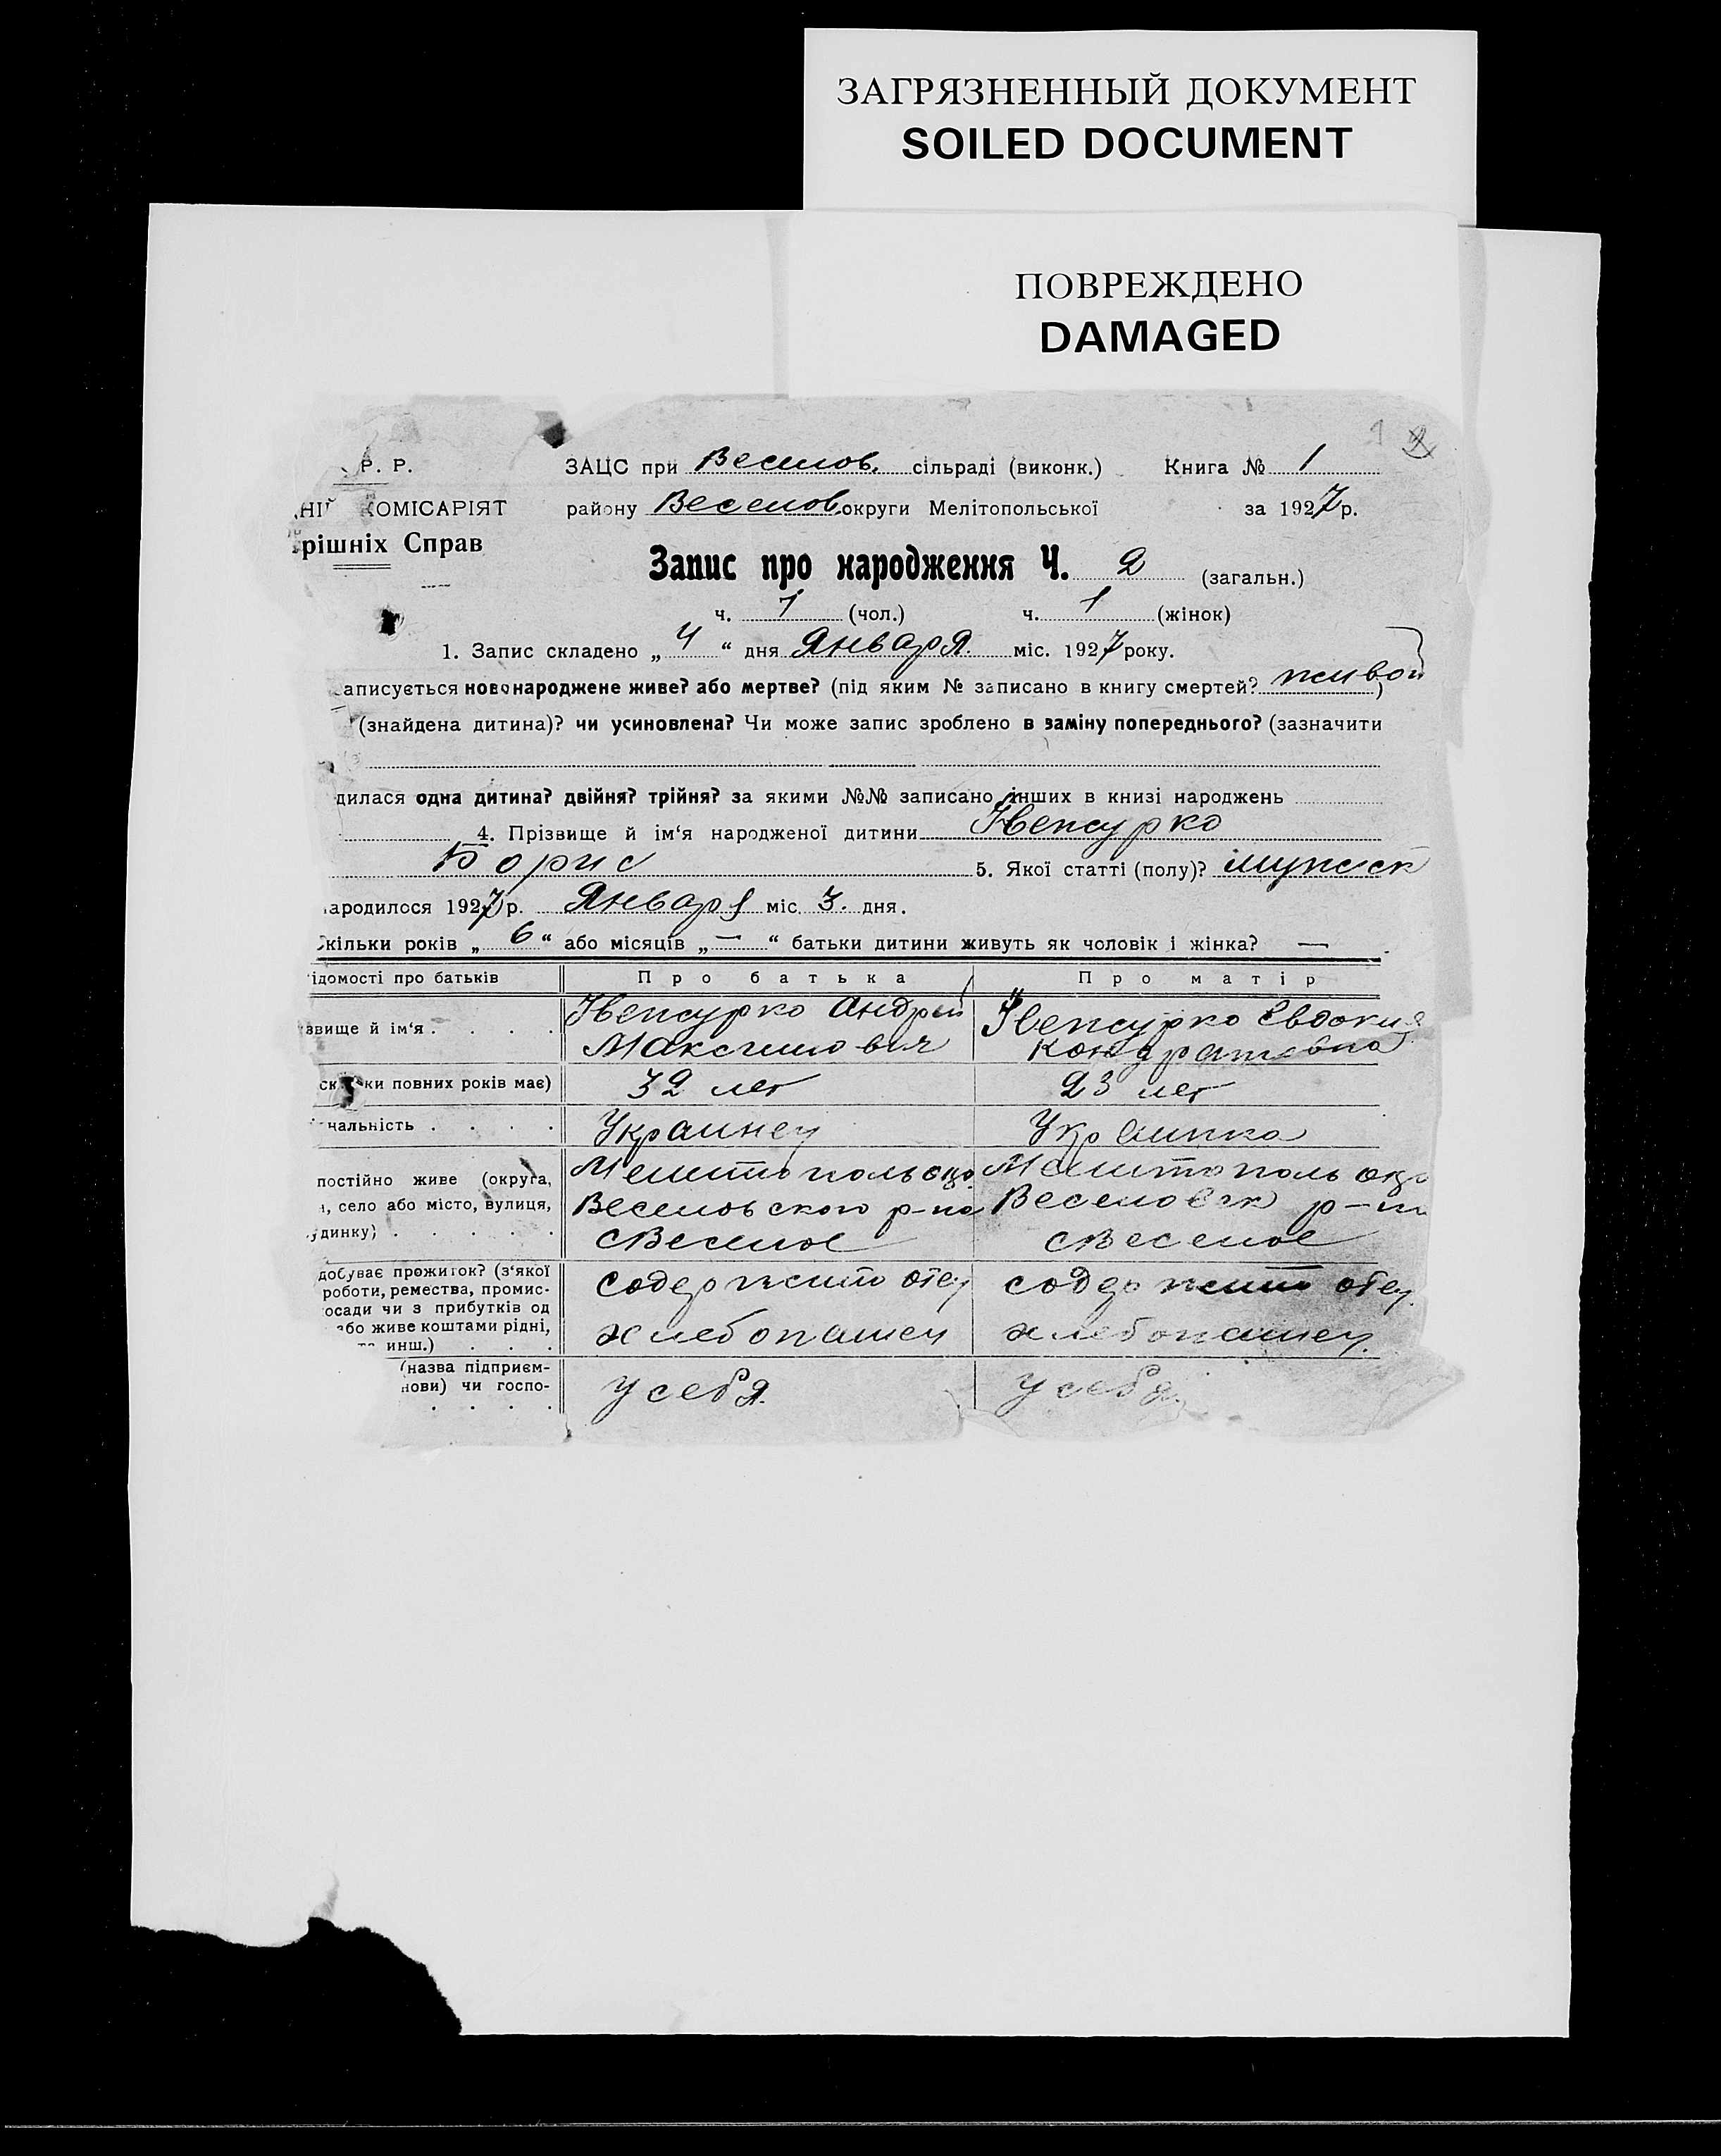 ЗАГРЯЗНЕННЫЙ ДОКУМЕНТ
SOILED DOCUMENT
ПОВРЕЖДЕНО
DAMAGED
Р. Р. ЗАЦС при Веселов. сільраді (виконк.) Книга № 1
КОМІСАРІЯТ району Веселов. округи Мелітопольської за 1927 р.
рішніх Справ
Запис про народження Ч. 2 (загальн.)
ч. 1 (чол.) ч. 1 (жінок)
1. Запис складено „ 4 “ дня Января. міс. 1927 року.
аписується новонароджене живе? або мертве? (під яким № записано в книгу смертей? живой )
(знайдена дитина)? чи усиновлена? Чи може запис зроблено в заміну попереднього? (зазначити
дилася одна дитина? двійня? трійня? за якими №№ записано інших в книзі народжень
4. Прізвище й ім‘я народженої дитини
Борис 5. Якої статті (полу)? мужск
ародилося 1927 р. Января міс. 3. дня.
кільки років „ 6 “ або місяців „ — “ батьки дитини живуть як чоловік і жінка? —
ідомості про батьків Про батька Про матір
Андрей Евдокия
звище й ім‘я . . . .
Максимович Кондратовна
ки повних років має) 32 лет 23 лет
нальність . . . . Украинец Украинка
постійно живе (округа, Мелитополь окр. Мелитополь окр
село або місто, вулиця, Веселовского р-на Веселовск р-на
удинку) . . . . . с Веселое с Веселое
добуває прожиток? (з‘якої содержит отец содержит отец.
роботи, ремества, промис-
осади чи з прибутків од
або живе коштами рідні, хлебопашец хлебопашец.
инш.) . . .
(назва підприєм-
нови) чи госпо- у себя. у себя.
. . . .